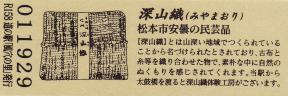 深山織(みやまおり)
松本市安曇の民芸品
【深山織】とは山深い地域でつくられている
ことから名づけられたとされており、古布と
糸等を織り合わせた物で、素朴な中に自然の
ぬくもりを感じさせてくれます。当駅から
太鼓橋を渡ると深山織体験工房がございます。
011929
R158道の駅「風穴の里」発行